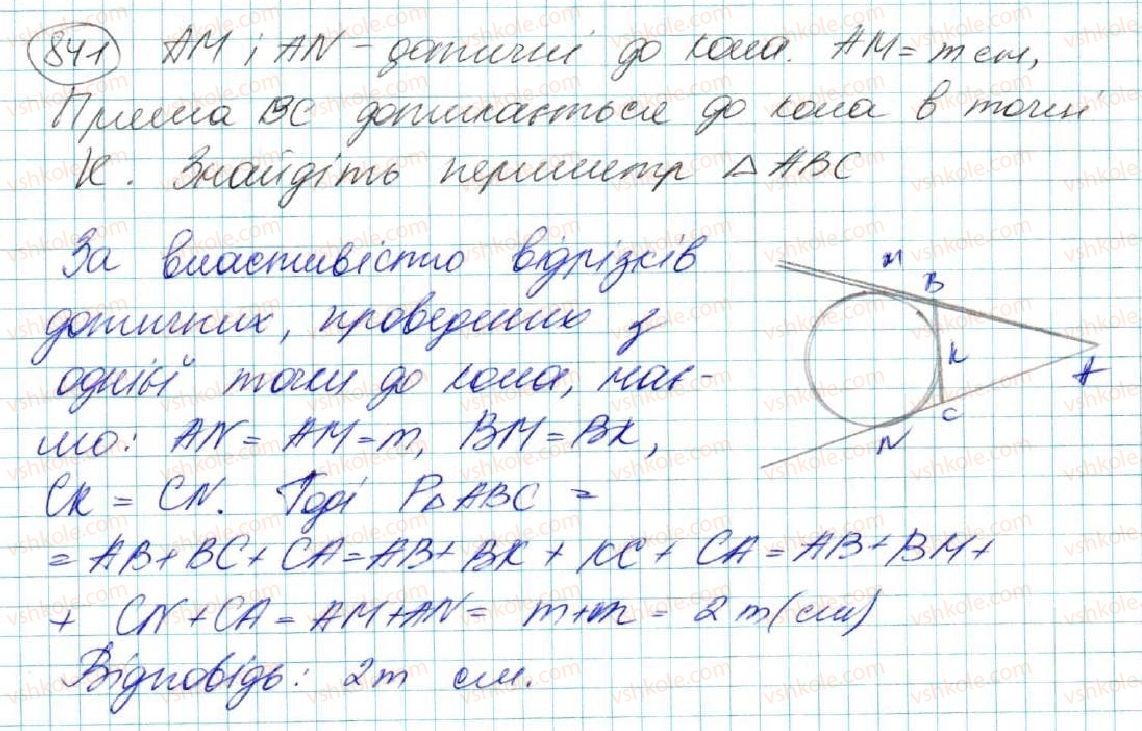 841 AM і AN - дотичні до кола. AM = m см,
Пряма BC дотикається до кола в точці
K. Знайдіть периметр △ABC
За властивістю відрізків
дотичних, проведених з
однієї точки до кола, має-
мо: AN = AM = m, BM = BK,
CK = CN. Тоді P△ABC =
= AB + BC + CA = AB + BK + KC + CA = AB + BM +
+ CN + CA = AM + AN = m + m = 2m (см)
Відповідь: 2m см.
M
B
K
A
C
N
vshkole.com